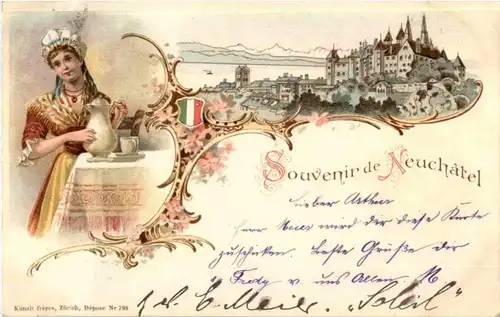 Souvenir de Neuchâtel
lieber Arthur
Herr Meier wird dir diese Karte
zuschicken. Beste Grüße dir
Fredy v. uns Allen M
E. Meier. "Soleil"
Künzli frères, Zürich, Dépose Nr 798